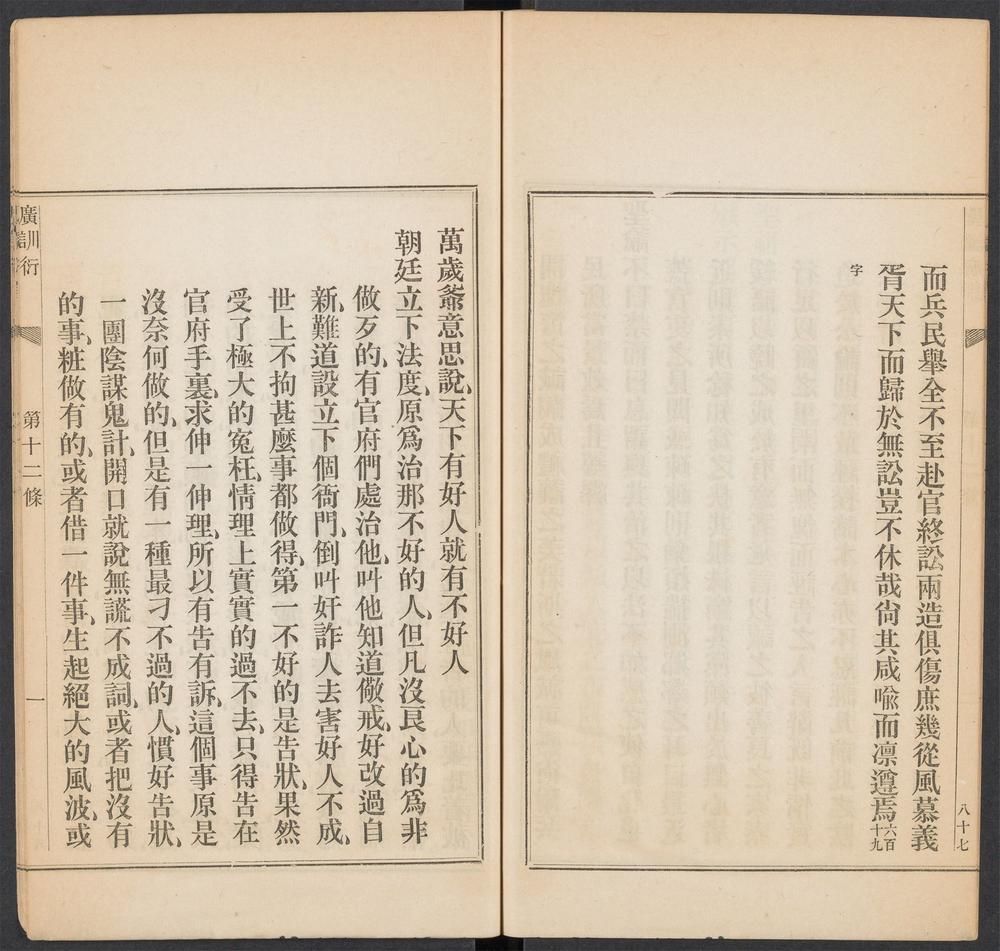 而兵民舉全不至赴官終訟兩造俱傷庶幾從風慕義
胥天下而歸於無訟豈不休哉尙其咸喩而凛遵焉六百十九
字
八十七
萬歲爺意思說、天下有好人就有不好人
朝廷立下法度、原爲治那不好的人、但凡沒良心的爲非
做歹的、有官府們處治他、叫他知道儆戒、好改過自
新、難道設立下個衙門、倒叫奸詐人去害好人不成、
世上不拘甚麼事都做得、第一不好的是告狀、果然
受了極大的寃枉、情理上實實的過不去、只得告在
官府手裏、求伸一伸理、所以有告有訴、這個事原是
沒奈何做的、但是有一種最刁不過的人、慣好告狀、
一團陰謀鬼計、開口就說無謊不成詞、或者把沒有
的事、粧做有的、或者借一件事、生起絕大的風波、或
廣訓衍
第十二條
一